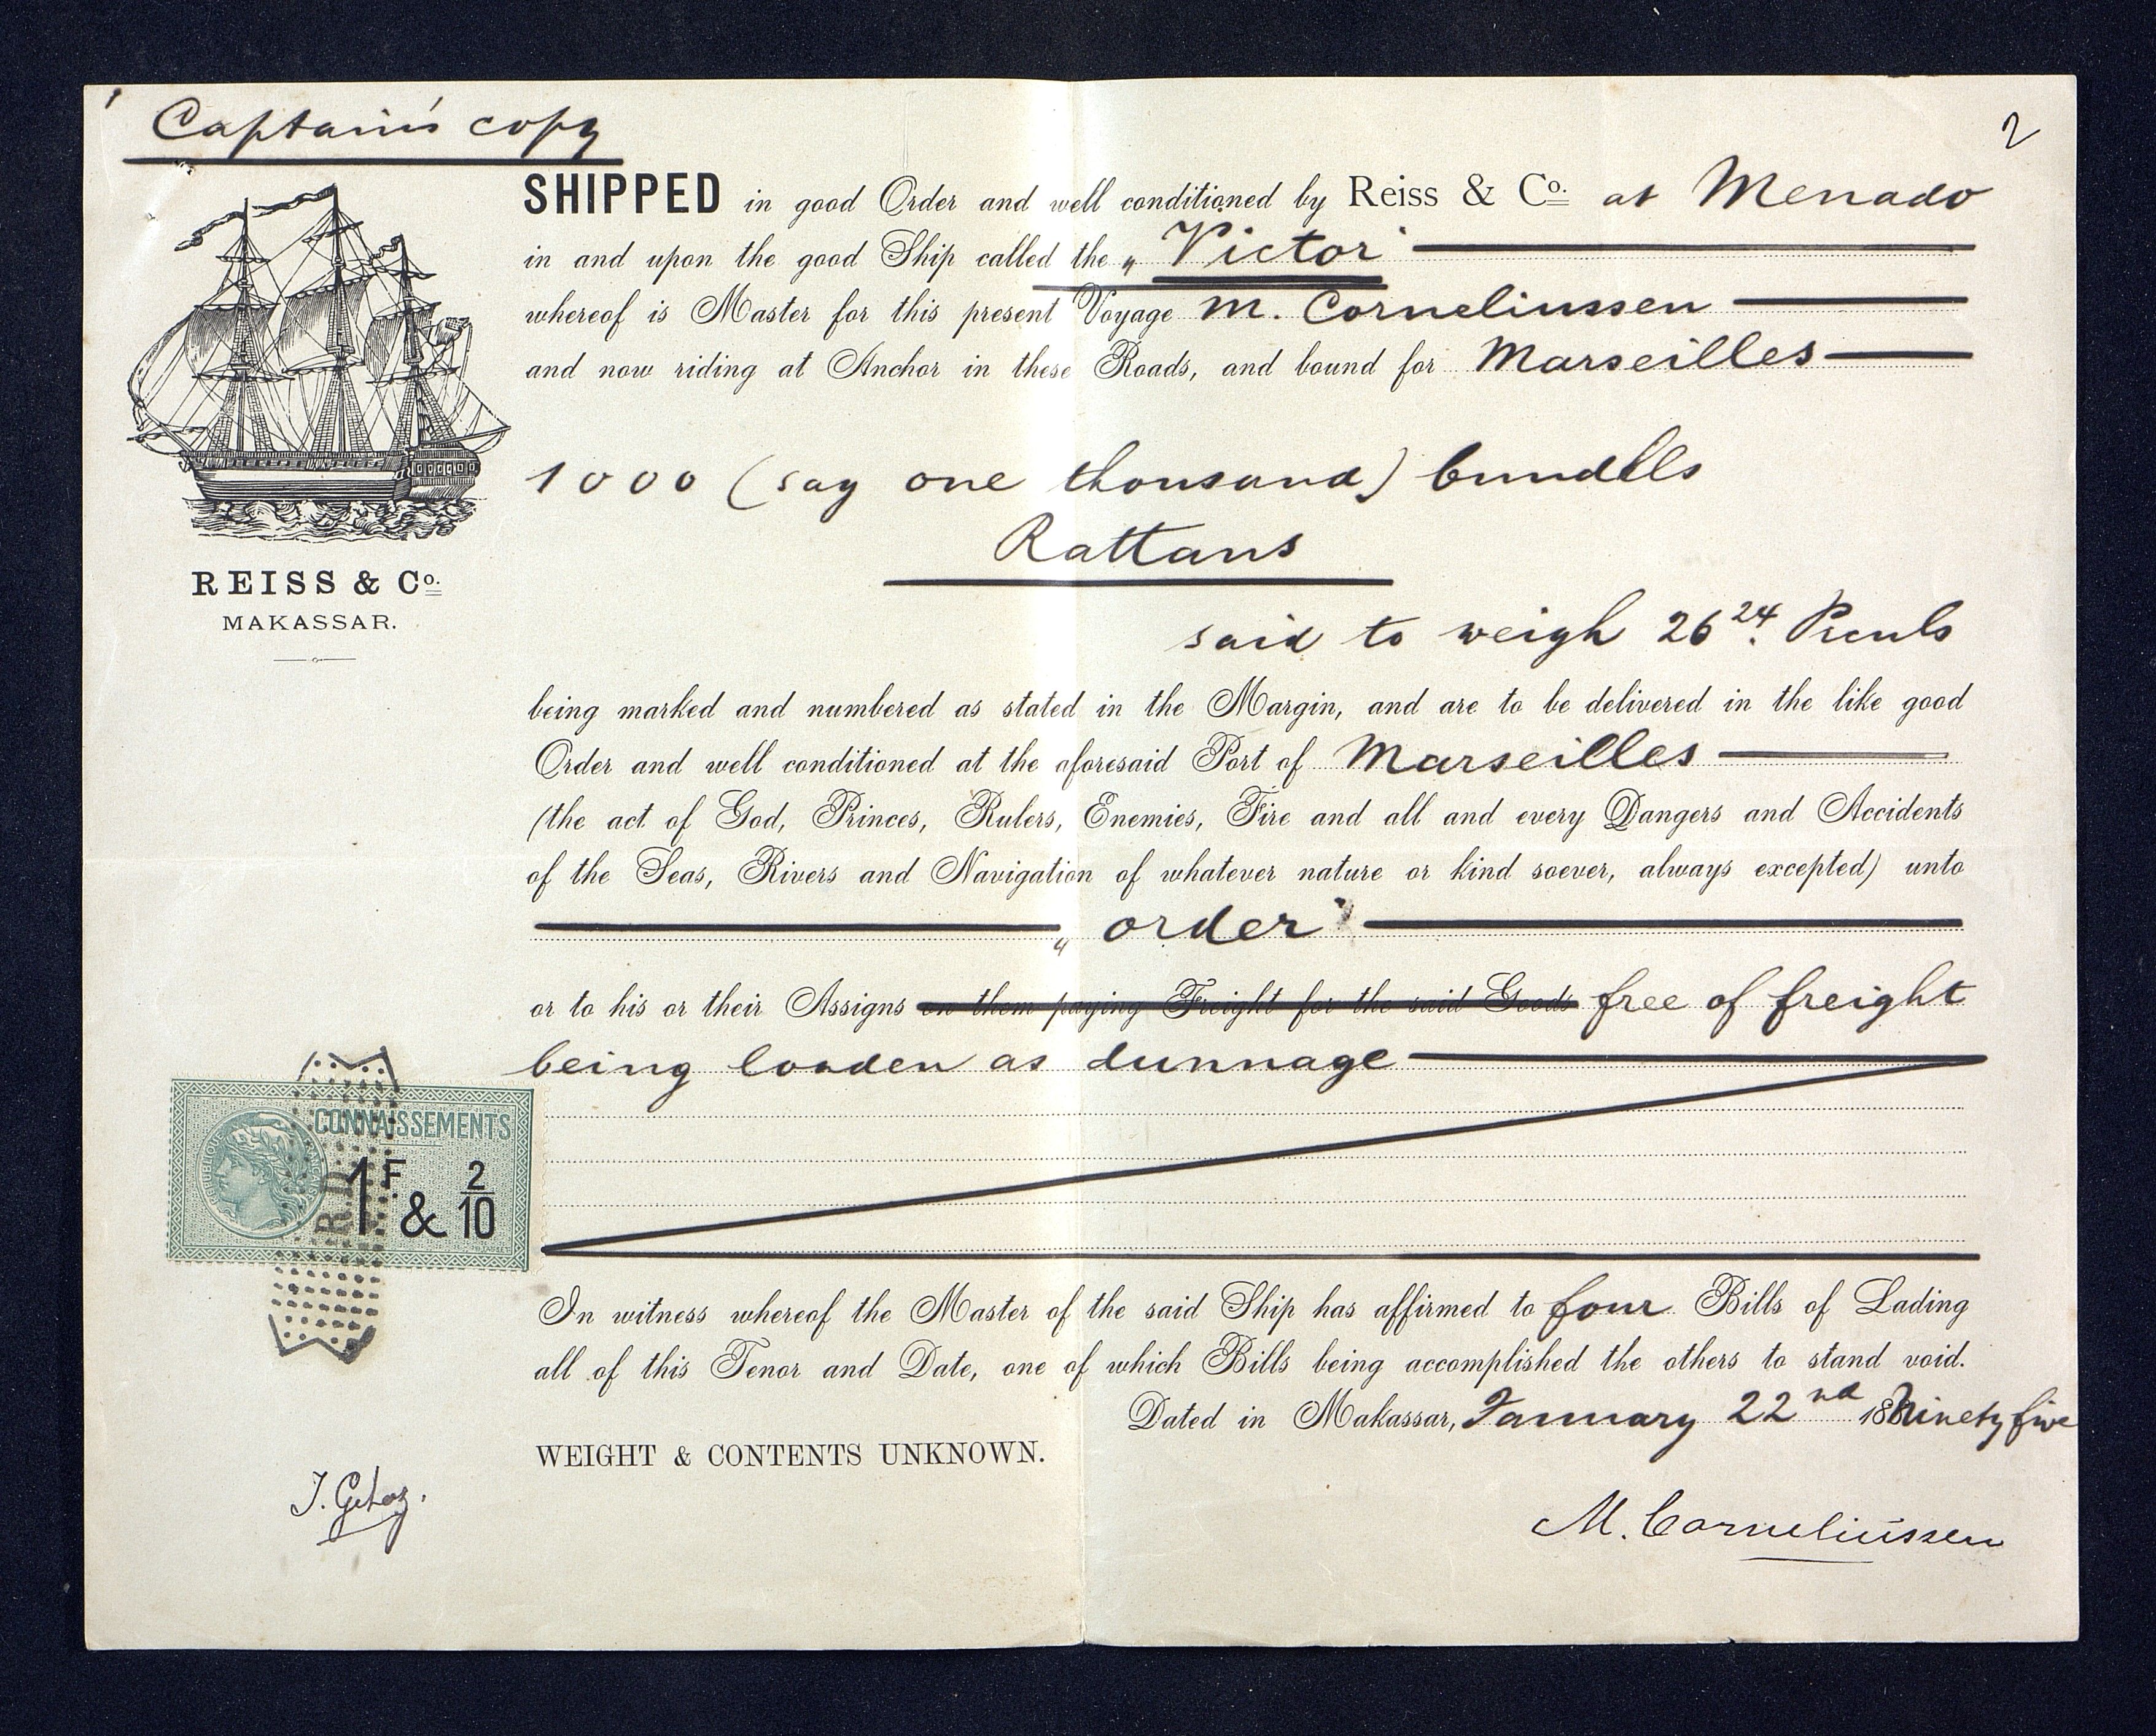 Captain's copy
2
SHIPPED in good Order and well conditioned by Reiss & Co. at Menado
in and upon the good Ship called the „Victor"
whereof is Master for this present Voyage M. Corneliussen
and now riding at Anchor in these Roads, and bound for Marseilles
1000 (say one thousand) bundlls
Rattans
REISS & Co.
MAKASSAR.
said to weigh 26 24. Piculs
being marked and numbered as stated in the Margin, and are to be delivered in the like good
Order and well conditioned at the aforesaid Port of Marseilles
(the act of God, Princes, Rulers, Enemies, Fire and all and every Dangers and Accidents
of the Seas, Rivers and Navigation of whatever nature or kind soever, always excepted) unto
„order"
or to his or their Assigns on them paying Freight for the said Goods free of freight
being loaden as dunnage
CONNAISSEMENTS
REPUBLIQUE FRANÇAISE
1F & 2/10
In witness whereof the Master of the said Ship has affirmed to four Bills of Lading
all of this Tenor and Date, one of which Bills being accomplished the others to stand void.
Dated in Makassar, January 22nd 188 Ninety five
WEIGHT & CONTENTS UNKNOWN.
M. Corneliussen